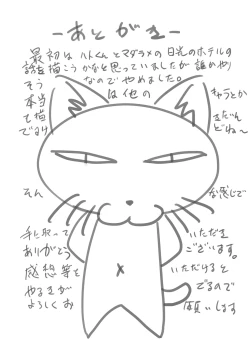 －あとがき－
最初はハトくんとマダラメの日光のホテルの
話を描こうかなと思っていましたが誰かやり
そうなのでやめました。
本当は他のキャラとか
も描てまだんで
るけどね～
そんな感じで
手に取っていただき
ありがとうございます。
感想等をいただけると
やるきがでるので
よろしくお願いします